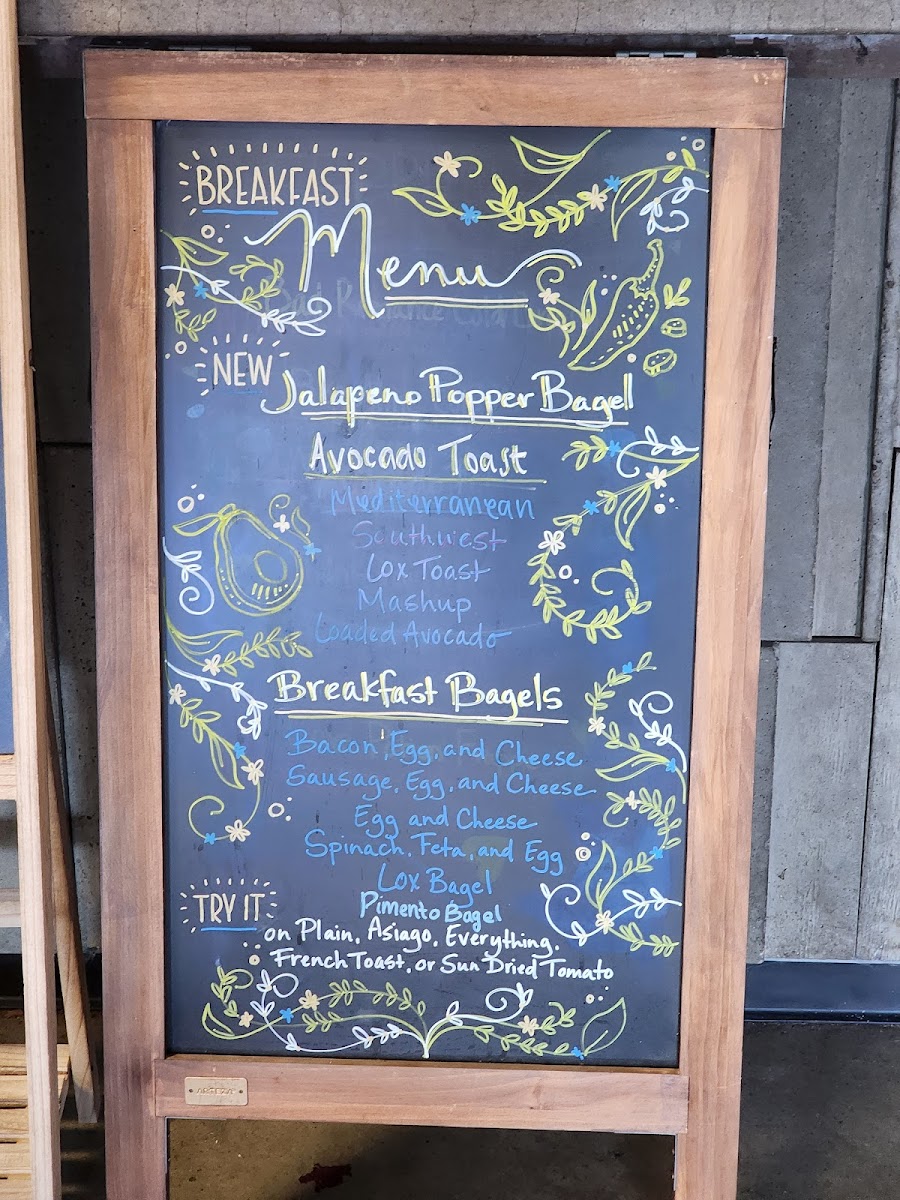 BREAKFAST
Menu
NEW
Jalapeno Popper Bagel
Avocado Toast
Mediterranean
Southwest
Lox Toast
Mashup
Loaded Avocado
Breakfast Bagels
Bacon, Egg, and Cheese
Sausage, Egg, and Cheese
Egg and Cheese
Spinach, Feta, and Egg
Lox Bagel
Pimento Bagel
TRY IT
on Plain, Asiago, Everything,
French Toast, or Sun Dried Tomato
ARTEZA